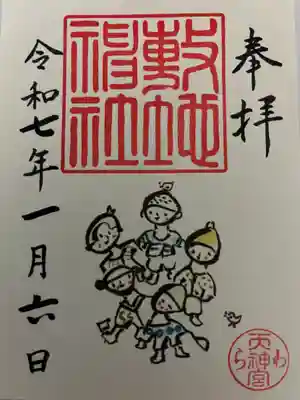 奉拝
敷地神社
令和七年一月六日
わら天神宮